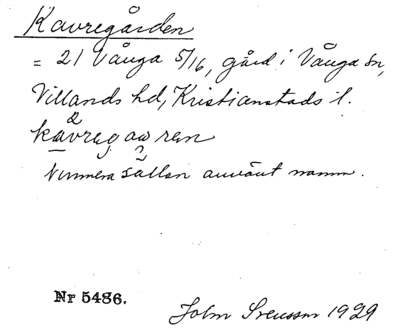 Kavregården
= 21 Vånga 5/16, gård i Vånga sn,
Villands hd, Kristianstads l.
2
kavregaaren
Numera sällan använt namn.
Nr 5486.
John Svensson 1929